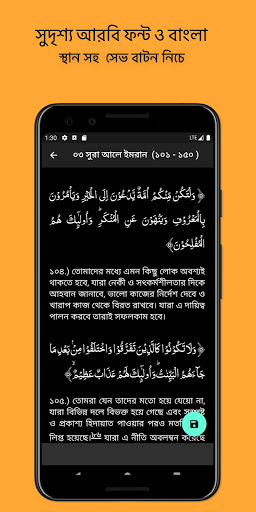 সুদৃশ্য আরবি ফন্ট ও বাংলা
স্থান সহ সেভ বাটন নিচে
1:30
LTE
০৩ সুরা আলে ইমরান (১০১ - ১৫০ )
﴿ وَلْتَكُن مِّنكُمْ أُمَّةٌ يَدْعُونَ إِلَى الْخَيْرِ وَيَأْمُرُونَ
بِالْمَعْرُوفِ وَيَنْهَوْنَ عَنِ الْمُنكَرِ ۚ وَأُولَٰئِكَ هُمُ
الْمُفْلِحُونَ﴾
১০৪.) তোমাদের মধ্যে এমন কিছু লোক অবশ্যই
থাকতে হবে, যারা নেকী ও সৎকর্মশীলতার দিকে
আহবান জানাবে, ভালো কাজের নির্দেশ দেবে ও
খারাপ কাজ থেকে বিরত রাখবে। যারা এ দায়িত্ব
পালন করবে তারাই সফলকাম হবে।
﴿ وَلَا تَكُونُوا كَالَّذِينَ تَفَرَّقُوا وَاخْتَلَفُوا مِن بَعْدِ مَا
جَاءَهُمُ الْبَيِّنَاتُ ۚ وَأُولَٰئِكَ لَهُمْ عَذَابٌ عَظِيمٌ ﴾
১০৫.) তোমরা যেন তাদের মতো হয়ে যেয়ো না,
যারা বিভিন্ন দলে বিভক্ত হয়ে গেছে এবং সুস্পষ্ট
ও প্রকাশ্য হিদায়াত পাওয়ার পরও মত
লিপ্ত হয়েছে। যারা এ নীতি অবলম্বন করেছে